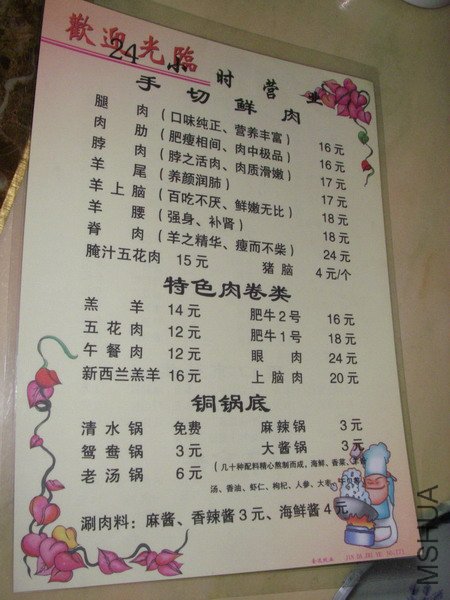 歡迎光臨
24小时营业
手切鲜肉
腿肉（口味纯正、营养丰富） 16元
肉肋（肥瘦相间、肉中极品） 16元
脖肉（脖之活肉、肉质滑嫩） 17元
羊尾（养颜润肺） 17元
羊上脑（百吃不厌、鲜嫩无比） 18元
羊腰（强身、补肾） 18元
脊肉（羊之精华、瘦而不柴） 24元
腌汁五花肉 15元 猪脑 4元/个
特色肉卷类
羔羊 14元 肥牛2号 16元
五花肉 12元 肥牛1号 18元
午餐肉 12元 眼肉 24元
新西兰羔羊 16元 上脑肉 20元
铜锅底
清水锅 免费 麻辣锅 3元
鸳鸯锅 3元 大酱锅 3元
老汤锅 6元（几十种配料精心熬制而成，海鲜、香菜、
汤、香油、虾仁、枸杞、人参、大枣、
涮肉料：麻酱、香辣酱3元、海鲜酱4元
MSHUA